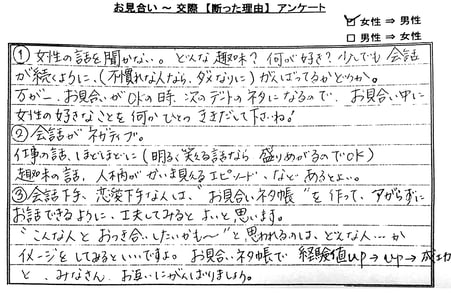 お見合い～交際【断った理由】アンケート
女性 ⇒ 男性
男性 ⇒ 女性
① 女性の話を聞かない。どんな趣味？何が好き？少しでも会話
が続くように、(不慣れな人なら、ダメなりに)がんばってるかどうか。
万が一、お見合いがOKの時、次のデートのネタになるので、お見合い中に
女性の好きなことを何かひとつききだして下さいね！
② 会話がネガティブ。
仕事の話、ほどほどに(明るく笑える話なら盛りあがるのでOK)
趣味の話、人柄がかいま見えるエピソード、などあるとよい。
③ 会話下手、恋愛下手な人は、"お見合いネタ帳"を作って、アガらずに
お話できるように、工夫してみるとよいと思います。
"こんな人とおつき合いしたいかも～"と思われるのは、どんな人…か
イメージをしてみるといいですよ。お見合いネタ帳で 経験値up→up→成功
と、みなさん、お互いにがんばりましょう。